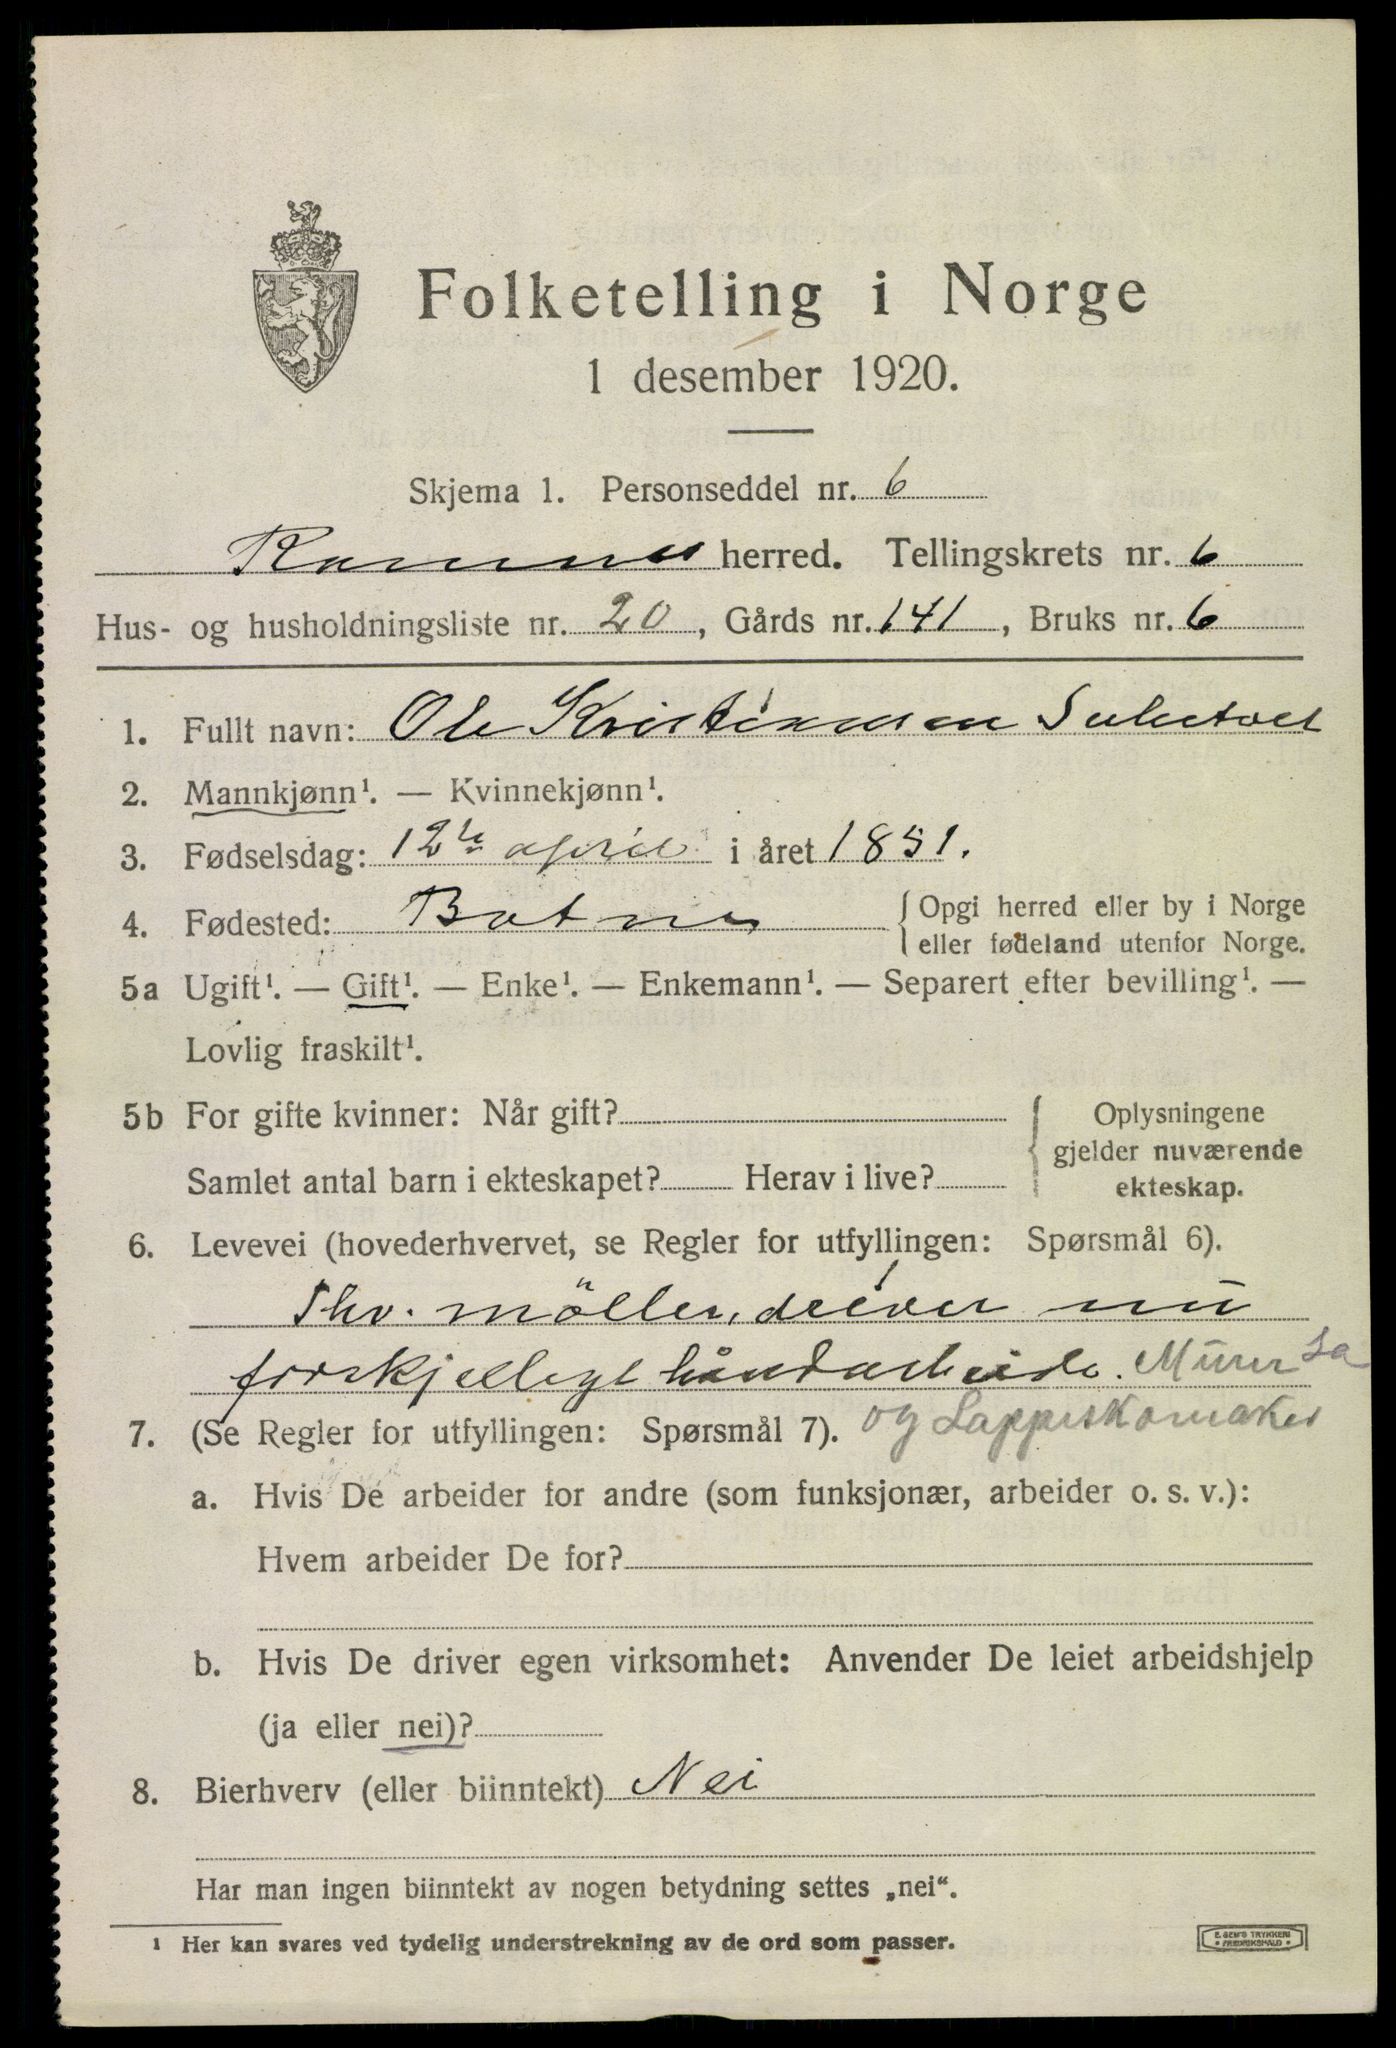 Folketelling i Norge
1 desember 1920.
Skjema 1. Personseddel nr. 6
Ramnes herred. Tellingskrets nr. 6
Hus- og husholdningsliste nr. 20, Gårds nr. 141, Bruks nr. 6
1. Fullt navn: Ole Kristiansen
2. Mannkjønn¹. — Kvinnekjønn¹.
3. Fødselsdag: 12te april i året 1851.
4. Fødested: Botne { Opgi herred eller by i Norge
eller fødeland utenfor Norge.
5a Ugift¹. — Gift¹. — Enke¹. — Enkemann¹. — Separert efter bevilling¹. —
Lovlig fraskilt¹.
5b For gifte kvinner: Når gift? { Oplysningene
gjelder nuværende
ekteskap.
Samlet antal barn i ekteskapet? Herav i live?
6. Levevei (hovederhvervet, se Regler for utfyllingen: Spørsmål 6).
Fhv. möller, driver nu
forskjelligt håndarbeide. Murer
og Lappeskomaker
7. (Se Regler for utfyllingen: Spørsmål 7).
a. Hvis De arbeider for andre (som funksjonær, arbeider o. s. v.):
Hvem arbeider De for?
b. Hvis De driver egen virksomhet: Anvender De leiet arbeidshjelp
(ja eller nei)?
8. Bierhverv (eller biinntekt) Nei
Har man ingen biinntekt av nogen betydning settes „nei“.
¹ Her kan svares ved tydelig understrekning av de ord som passer.
E. SEM'S TRYKKERI
• FREDRIKSHALD •